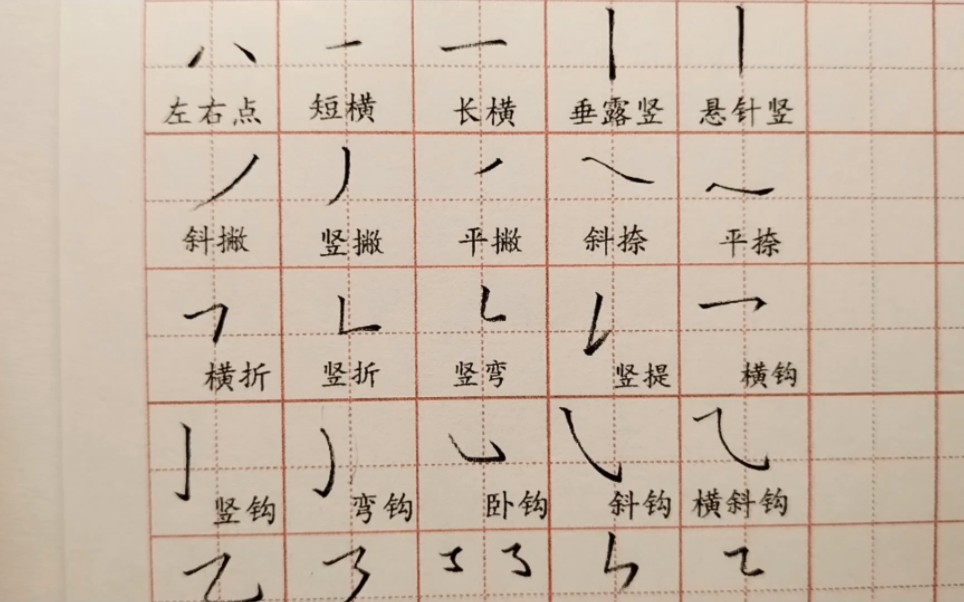 左右点 短横 长横 垂露竖 悬针竖
斜撇 竖撇 平撇 斜捺 平捺
横折 竖折 竖弯 竖提 横钩
竖钩 弯钩 卧钩 斜钩 横斜钩